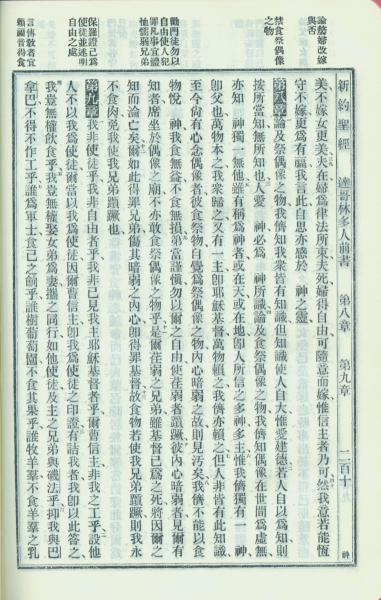 新約聖經 達哥林多人前書 第八章 第九章 二百十
論嫠婦改嫁
與否
禁食祭偶像
之物
勸門徒勿以
自由使人犯
罪凡事宜體
恤懦弱兄弟
保羅證己爲
使徒並述明
自由之處
言傳教者宜
賴福音得食
美不嫁女更美夫在婦爲律法所束夫死婦得自由可隨意而嫁惟信主者乃可然我意若能恆
守不嫁更爲有福我言此自思亦感於 神之靈
第八章論及祭偶像之物我儕知我衆皆有知識但知識使人自大惟愛建德若人自以爲知則
按所當知無所知也人愛 神必爲 神所識論及食祭偶像之物我儕知偶像在世間爲虛無
亦知 神獨一無他雖有稱爲神者或在天或在地卽人所信之多神多主惟我儕獨有一 神
卽父也萬物本之我衆歸之又有一主卽耶穌基督萬物賴之我儕亦賴之但人非皆有此知識
至今尙有心念偶像者彼食祭物自覺爲祭偶像之物內心暗弱之故則見汚矣我儕不能以食
物悅 神我食無益不食無損弟當謹愼勿以爾之自由使荏弱者躓蹶彼內心暗弱者見爾有
知者席坐於偶像之廟不亦敢食祭偶像之物乎是爾荏弱之兄弟雖基督已爲之死將因爾之
知而淪亡矣爾如此得罪兄弟傷其暗弱之內心卽得罪基督故食物若使我兄弟躓蹶則我永
不食肉免我使我兄弟躓蹶也
第九章我非使徒乎我非自由者乎我非已見我主耶穌基督者乎爾曹信主非我之工乎設他
人不以我爲使徒爾當以我爲使徒因爾曹信主卽我爲使徒之印證有詰我者我卽以此答之
我豈無權飲食乎我豈無權娶女弟爲妻攜之同行如他使徒及主之兄弟與磯法乎抑我與巴
拿巴不得不作工乎誰爲軍士食己之餉乎誰樹葡萄園不食其果乎誰牧羊羣不食羊羣之乳